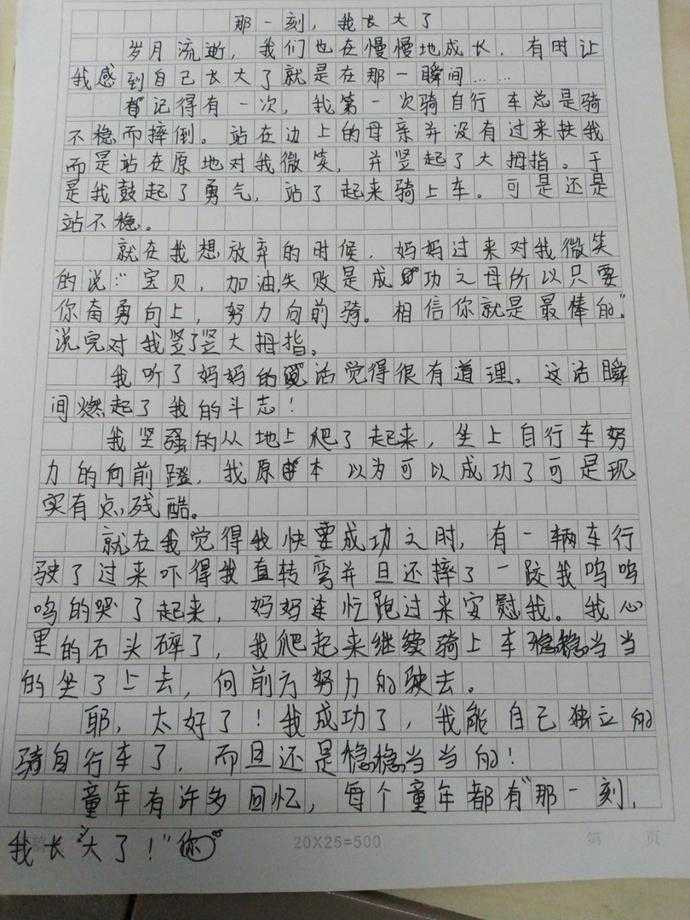 那一刻，我长大了
岁月流逝，我们也在慢慢地成长，有时让
我感到自己长大了就是在那一瞬间……
记得有一次，我第一次骑自行车总是骑
不稳而摔倒。站在边上的母亲并没有过来扶我
而是站在原地对我微笑，并竖起了大拇指。于
是我鼓起了勇气，站了起来骑上车。可是还是
站不稳。
就在我想放弃的时候，妈妈过来对我微笑
的说：“宝贝，加油，失败是成功之母所以只要
你奋勇向上，努力向前骑。相信你就是最棒的”
说完对我竖了竖大拇指。
我听了妈妈的话觉得很有道理。这话瞬
间燃起了我的斗志！
我坚强的从地上爬了起来，坐上自行车努
力的向前蹬，我原本以为可以成功了可是现
实有点残酷。
就在我觉得我快要成功之时，有一辆车行
驶了过来吓得我直转弯并且还摔了一跤我呜呜
呜的哭了起来，妈妈连忙跑过来安慰我。我心
里的石头碎了，我爬起来继续骑上车稳稳当当
的坐了上去，向前方努力的驶去。
耶，太好了！我成功了，我能自己独立的
骑自行车了，而且还是稳稳当当的！
童年有许多回忆，每个童年都有“那一刻，
我长大了！”你
20X25=500
第 页